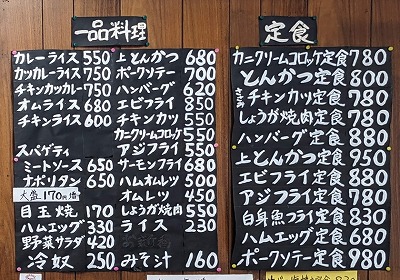 一品料理
カレーライス 550
カツカレーライス 750
チキンカツカレー 750
オムライス 680
チキンライス 600
スパゲティ
ミートソース 650
ナポリタン 650
大盛 170円増
目玉焼 170
ハムエッグ 330
野菜サラダ 420
冷奴 250
上とんかつ 680
ポークソテー 700
ハンバーグ 620
エビフライ 850
チキンカツ 550
カニクリームコロッケ 550
アジフライ 550
サーモンフライ 680
ハムオムレツ 500
オムレツ 450
しょうが焼肉 550
ライス 230
みそ汁 160
定食
カニクリームコロッケ定食 780
とんかつ定食 800
チキンカツ定食 780
しょうが焼肉定食 780
ハンバーグ定食 880
上とんかつ定食 950
エビフライ定食 880
アジフライ定食 780
白身魚フライ定食 830
ハムエッグ定食 680
ポークソテー定食 980